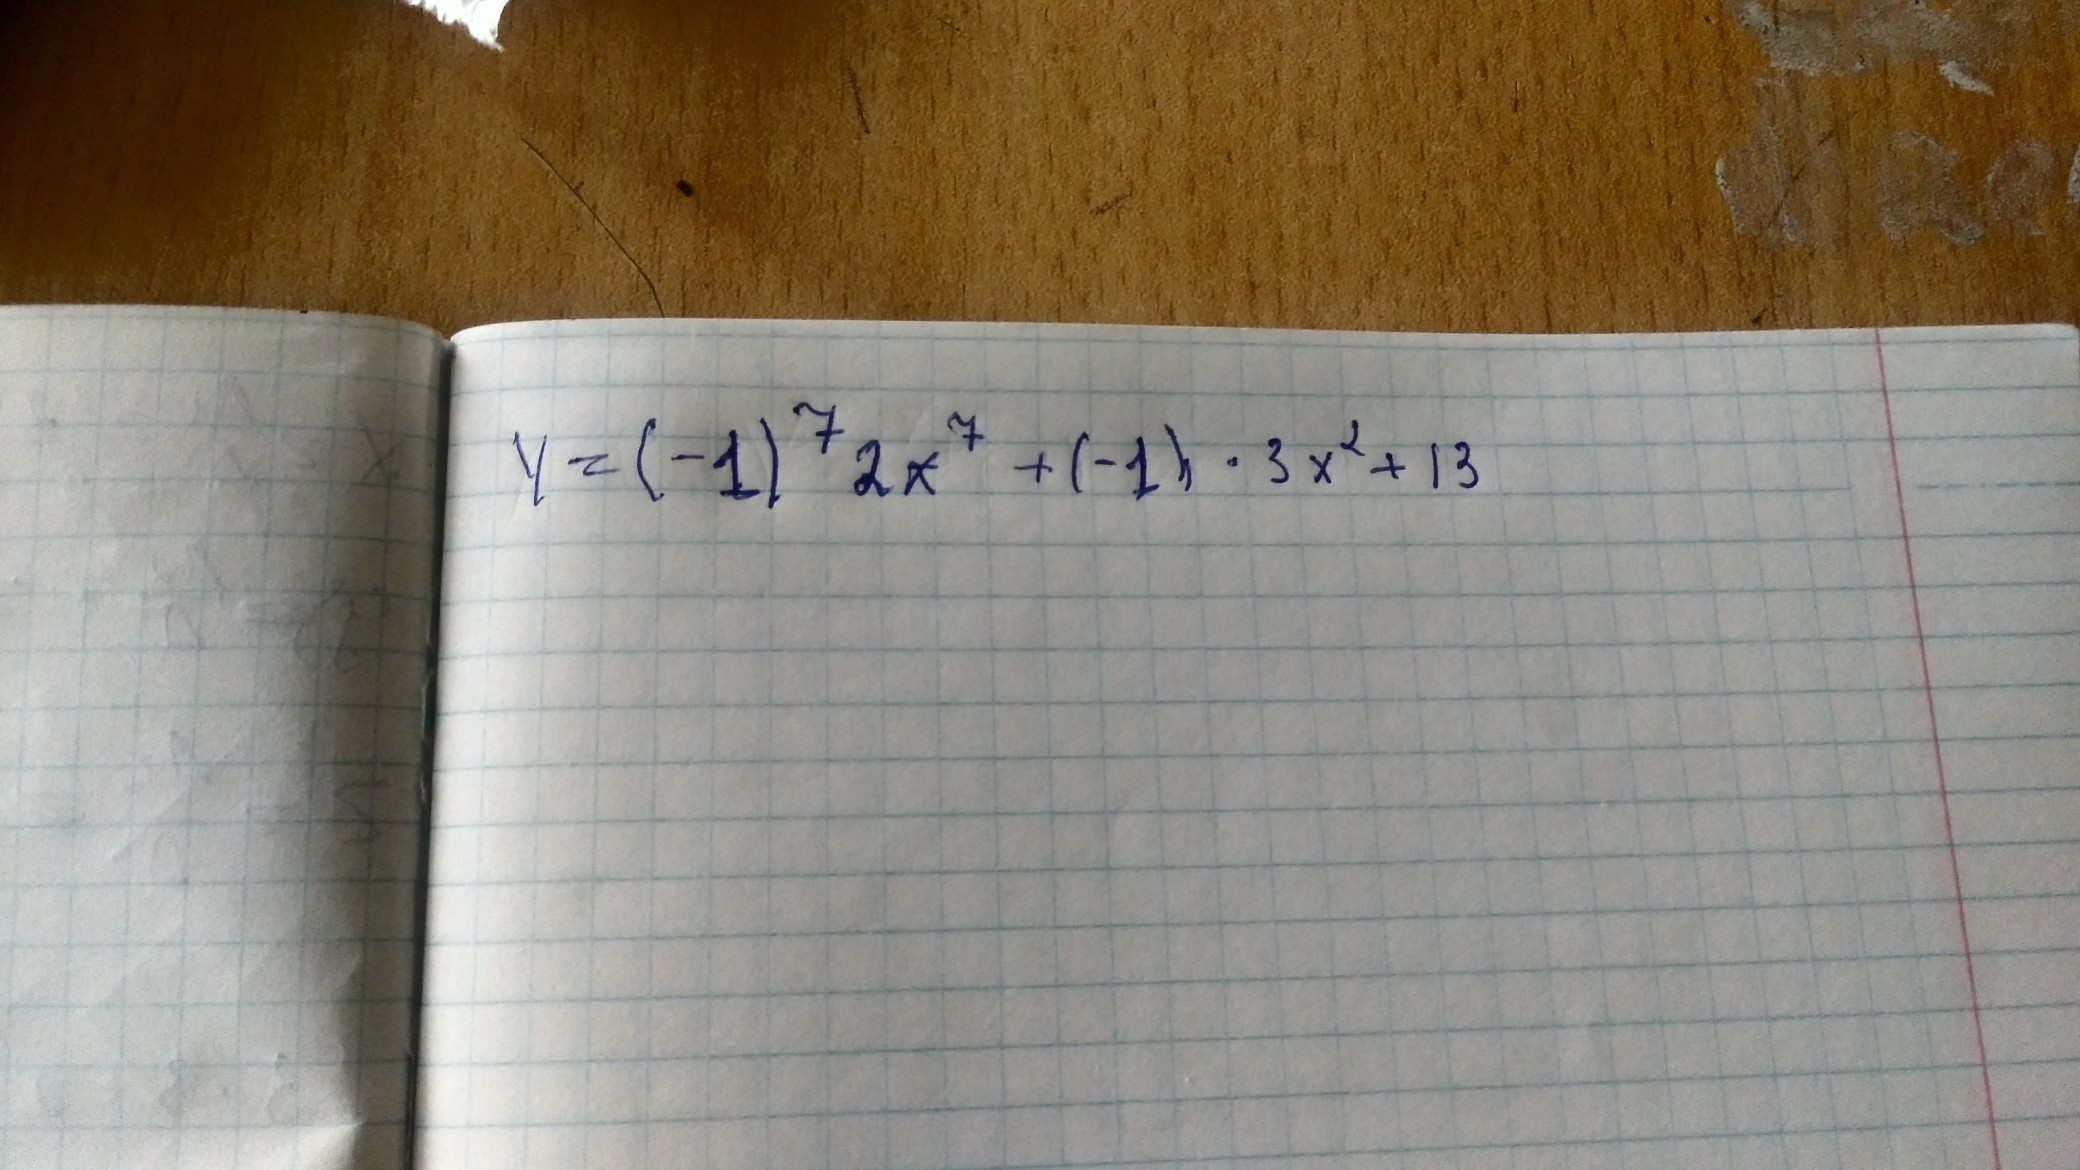 y = (-1)⁷ 2x⁷ + (-1) · 3x² + 13